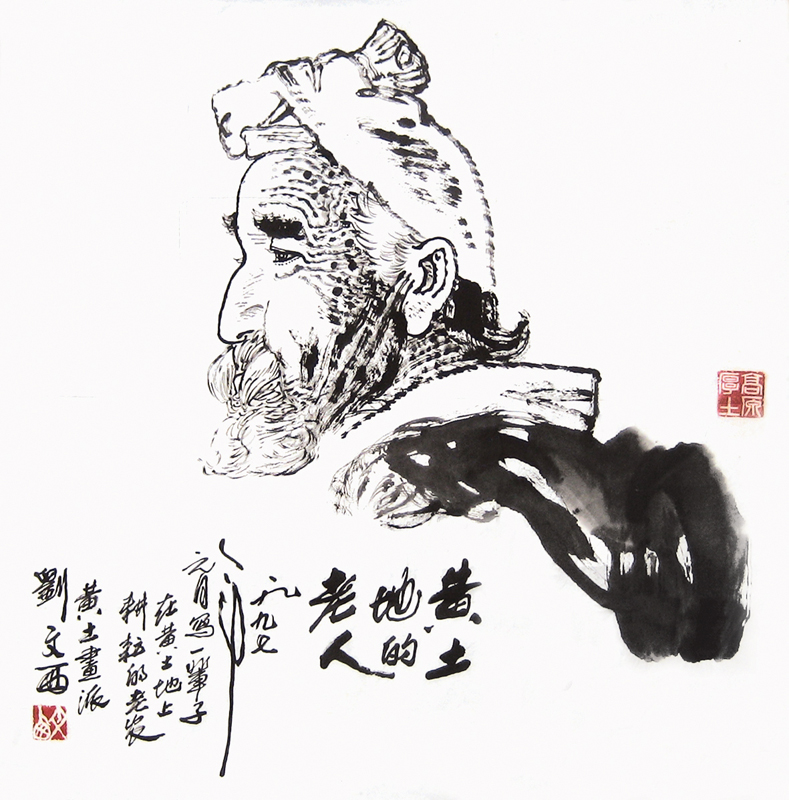 黄土
地的
老人
一九九七
年
元月寫一輩子
在黄土地上
耕耘的老农
黄土畫派
劉文西
高原
厚土